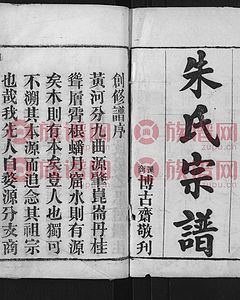 朱氏宗譜
博古齋敬刋
創修譜序
黃河分九曲源肇崑崙丹桂
聳層霄根蟠月窟水則有源
矣木則有本矣豈人也獨可
不溯其本源而追念其祖宗
也哉我先人自婺源分支商